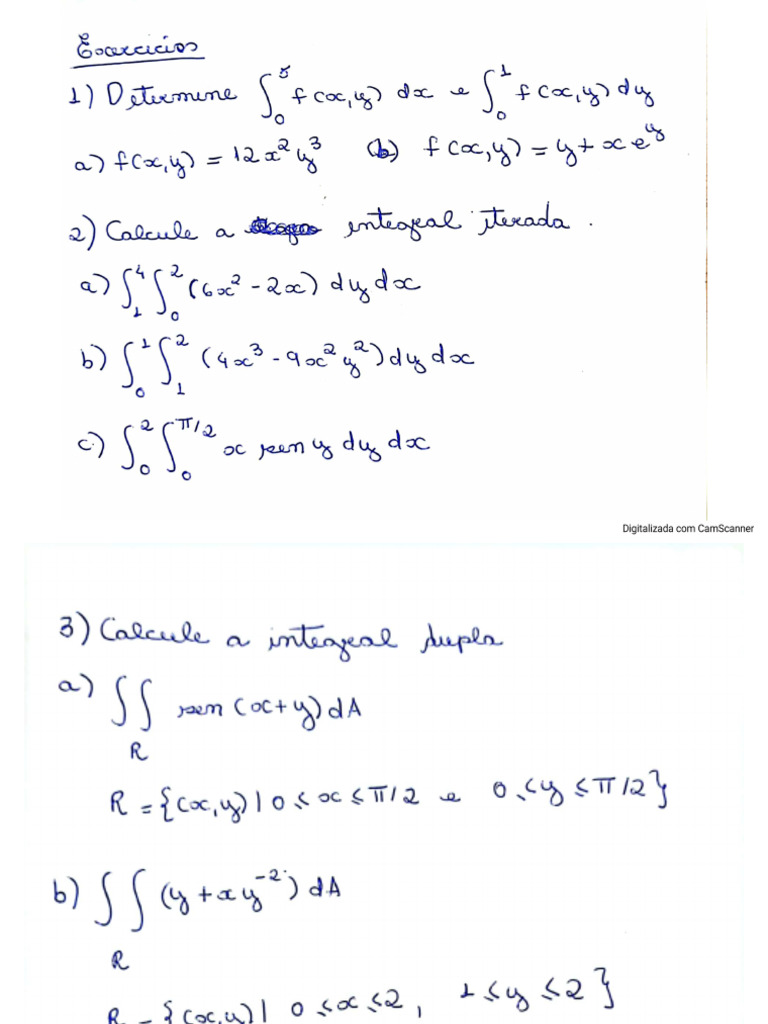 Exercícios
1) Determine ∫₀⁵ f(x,y) dx e ∫₀¹ f(x,y) dy
a) f(x,y) = 12x²y³ (b) f(x,y) = y + xe^y
2) Calcule a integral iterada.
a) ∫₁⁴ ∫₀² (6x² - 2x) dy dx
b) ∫₀¹ ∫₁² (4x³ - 9x²y²) dy dx
c) ∫₀² ∫₀^{π/2} x sen y dy dx
Digitalizada com CamScanner
3) Calcule a integral dupla
a) ∫∫ sen(x+y) dA
R
R = {(x,y) | 0 ≤ x ≤ π/2 e 0 ≤ y ≤ π/2}
b) ∫∫ (y + xy⁻²) dA
R
R = {(x,y) | 0 ≤ x ≤ 2, 1 ≤ y ≤ 2}